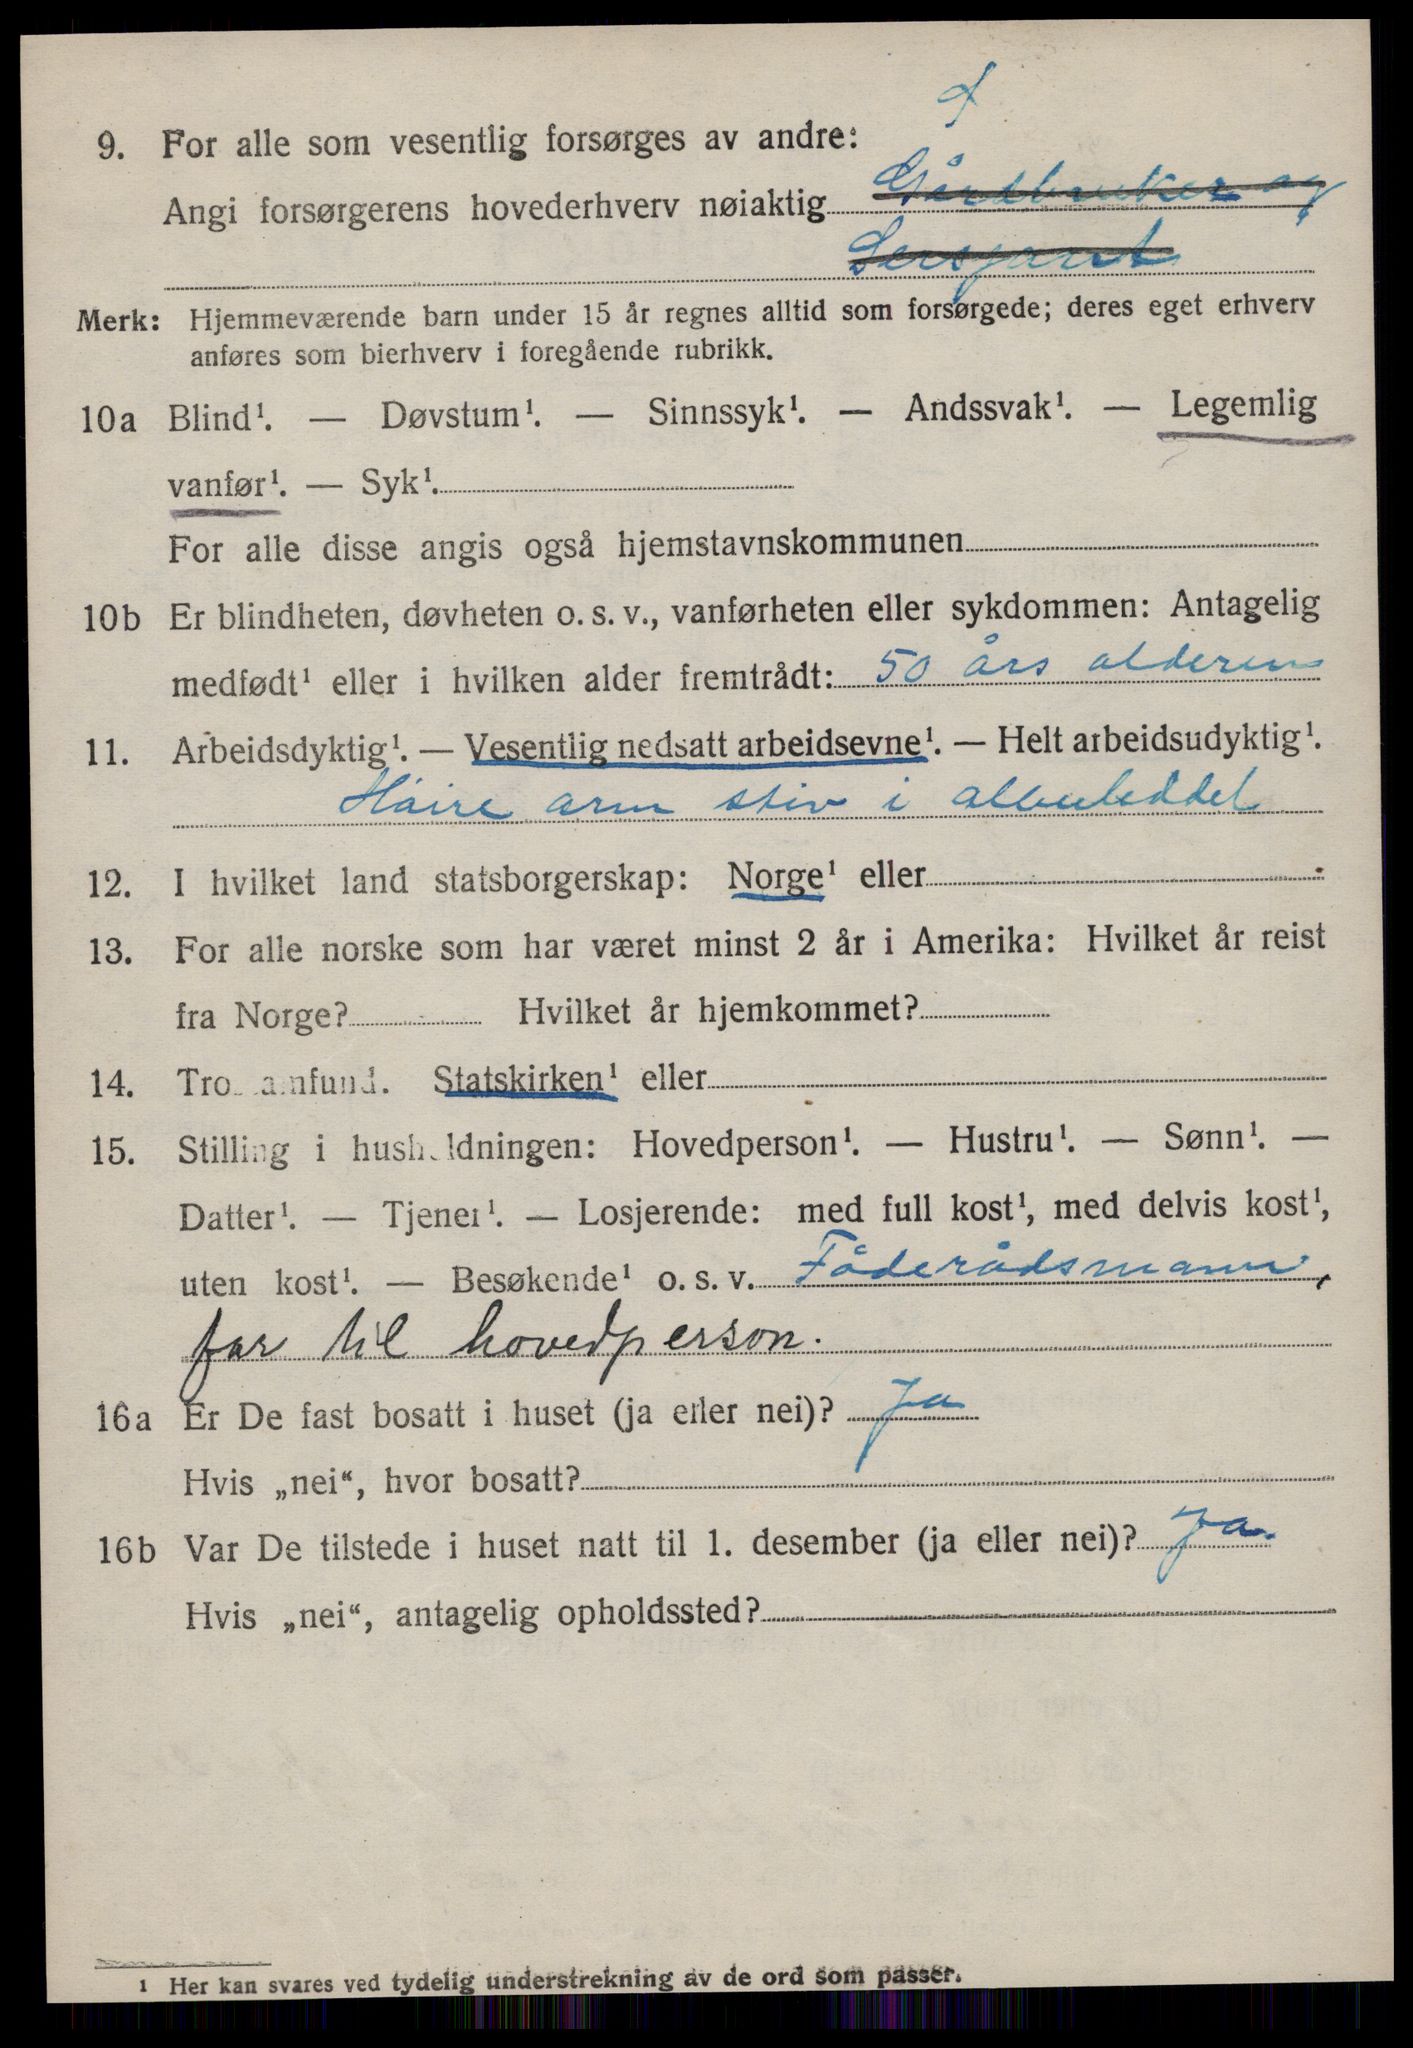 9. For alle som vesentlig forsørges av andre:
Angi forsørgerens hovederhverv nøiaktig Gårdbruker og
Sersjant
Merk: Hjemmeværende barn under 15 år regnes alltid som forsørgede; deres eget erhverv
anføres som bierhverv i foregående rubrikk.
10a Blind¹. — Døvstum¹. — Sinnssyk¹. — Andssvak¹. — Legemlig
vanfør¹. — Syk¹.
For alle disse angis også hjemstavnskommunen
10b Er blindheten, døvheten o. s. v., vanførheten eller sykdommen: Antagelig
medfødt¹ eller i hvilken alder fremtrådt: 50 års alderen
11. Arbeidsdyktig¹. — Vesentlig nedsatt arbeidsevne¹. — Helt arbeidsudyktig¹.
Høire arm stiv i albueleddet
12. I hvilket land statsborgerskap: Norge¹ eller
13. For alle norske som har været minst 2 år i Amerika: Hvilket år reist
fra Norge? Hvilket år hjemkommet?
14. Trossamfund. Statskirken¹ eller
15. Stilling i husholdningen: Hovedperson¹. — Hustru¹. — Sønn¹. —
Datter¹. — Tjener¹. — Losjerende: med full kost¹, med delvis kost¹,
uten kost¹. — Besøkende¹ o. s. v. Føderådsmann,
far til hovedperson.
16a Er De fast bosatt i huset (ja eller nei)? Ja
Hvis „nei“, hvor bosatt?
16b Var De tilstede i huset natt til 1. desember (ja eller nei)? Ja.
Hvis „nei“, antagelig opholdssted?
¹ Her kan svares ved tydelig understrekning av de ord som passer.